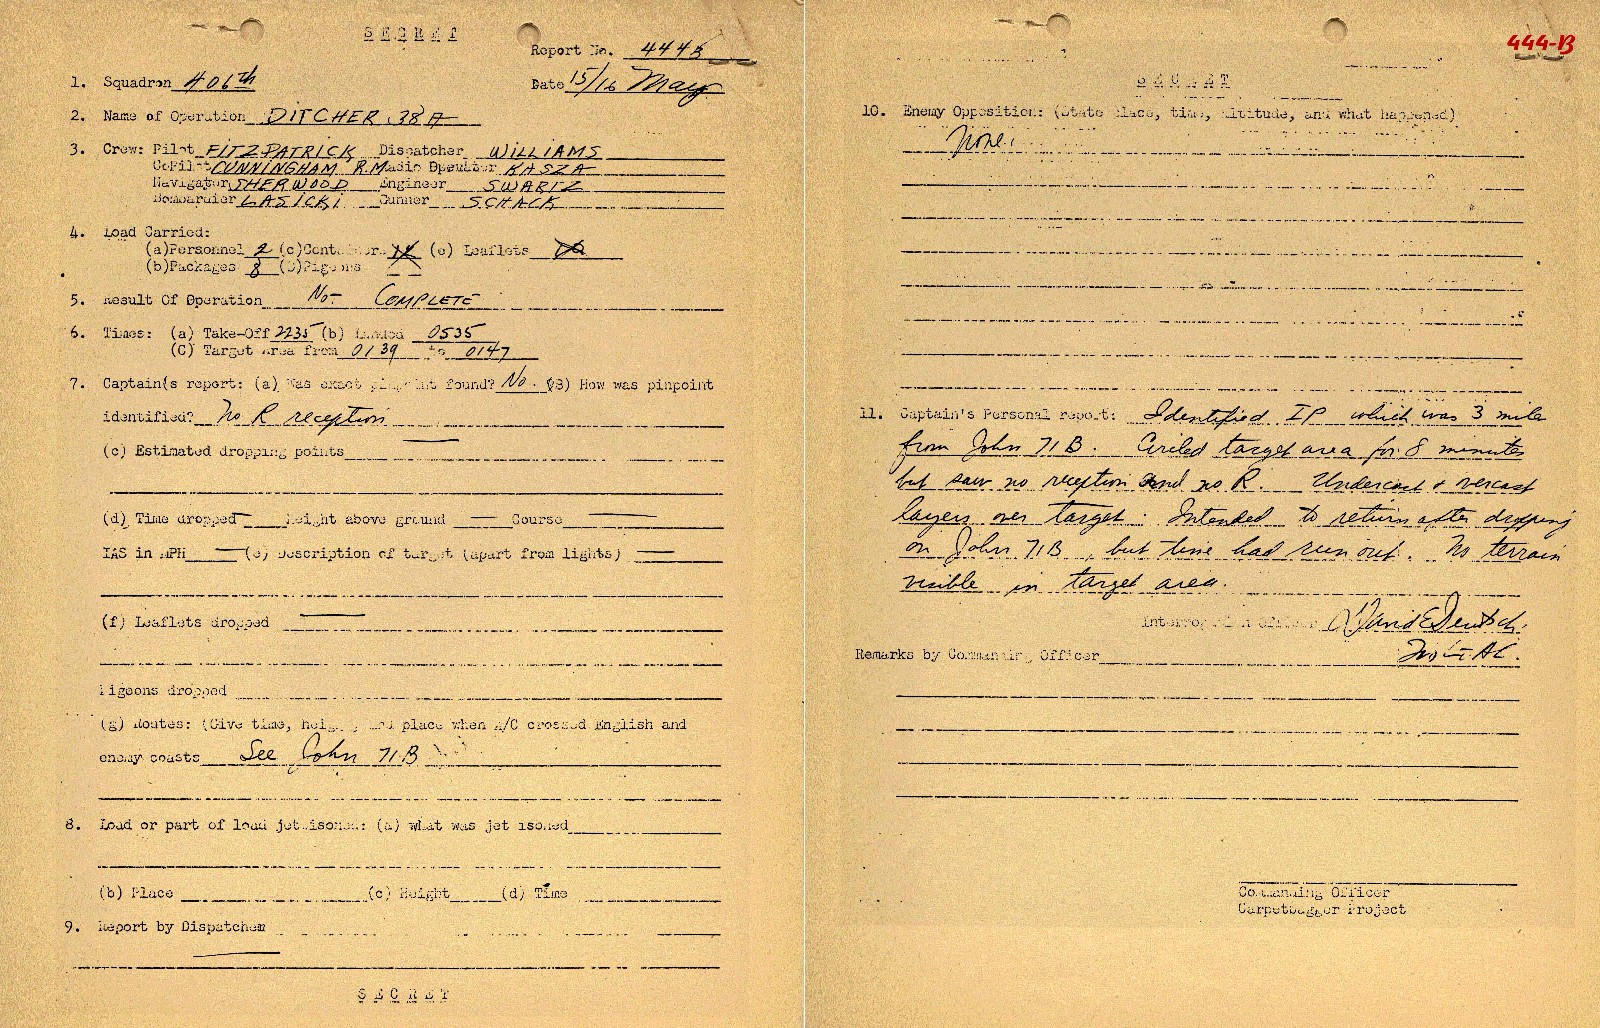 SECRET
Report No. 444B
1. Squadron 406th Date 15/16 May
2. Name of Operation DITCHER 38A
3. Crew: Pilot FITZPATRICK Dispatcher WILLIAMS
CoPilot CUNNINGHAM R.M. Radio Operator KASZA
Navigator SHERWOOD Engineer SWARTZ
Bombardier LASICKI Gunner SCHACK
4. Load Carried:
(a)Personnel 2 (c)Containers (e) Leaflets
(b)Packages 8 (D)Pigeons
5. Result Of Operation Not COMPLETE
6. Times: (a) Take-Off 2235 (b) Landed 0535
(C) Target Area from 0139 to 0147
7. Captain(s report: (a) Was exact pinpoint found? No. (B) How was pinpoint
identified? No R reception
(c) Estimated dropping points
(d) Time dropped Height above ground Course
IAS in MPH (e) Description of target (apart from lights)
(f) Leaflets dropped
Pigeons dropped
(g) Routes: (Give time, height, and place when A/C crossed English and
enemy coasts See John 71B
8. Load or part of load jettisoned: (a) what was jettisoned
(b) Place (c) Height (d) Time
9. Report by Dispatcher
SECRET
444-B
SECRET
10. Enemy Opposition: (State place, time, altitude, and what happened)
None.
11. Captain's Personal report: Identified IP which was 3 mile
from John 71B. Circled target area for 8 minutes
but saw no reception and no R. Undercast & overcast
layers over target. Intended to return after dropping
on John 71B, but time had run out. No terrain
visible in target area.
Interrogation Officer David E Deutsch.
Remarks by Commanding Officer
Commanding Officer
Carpetbagger Project